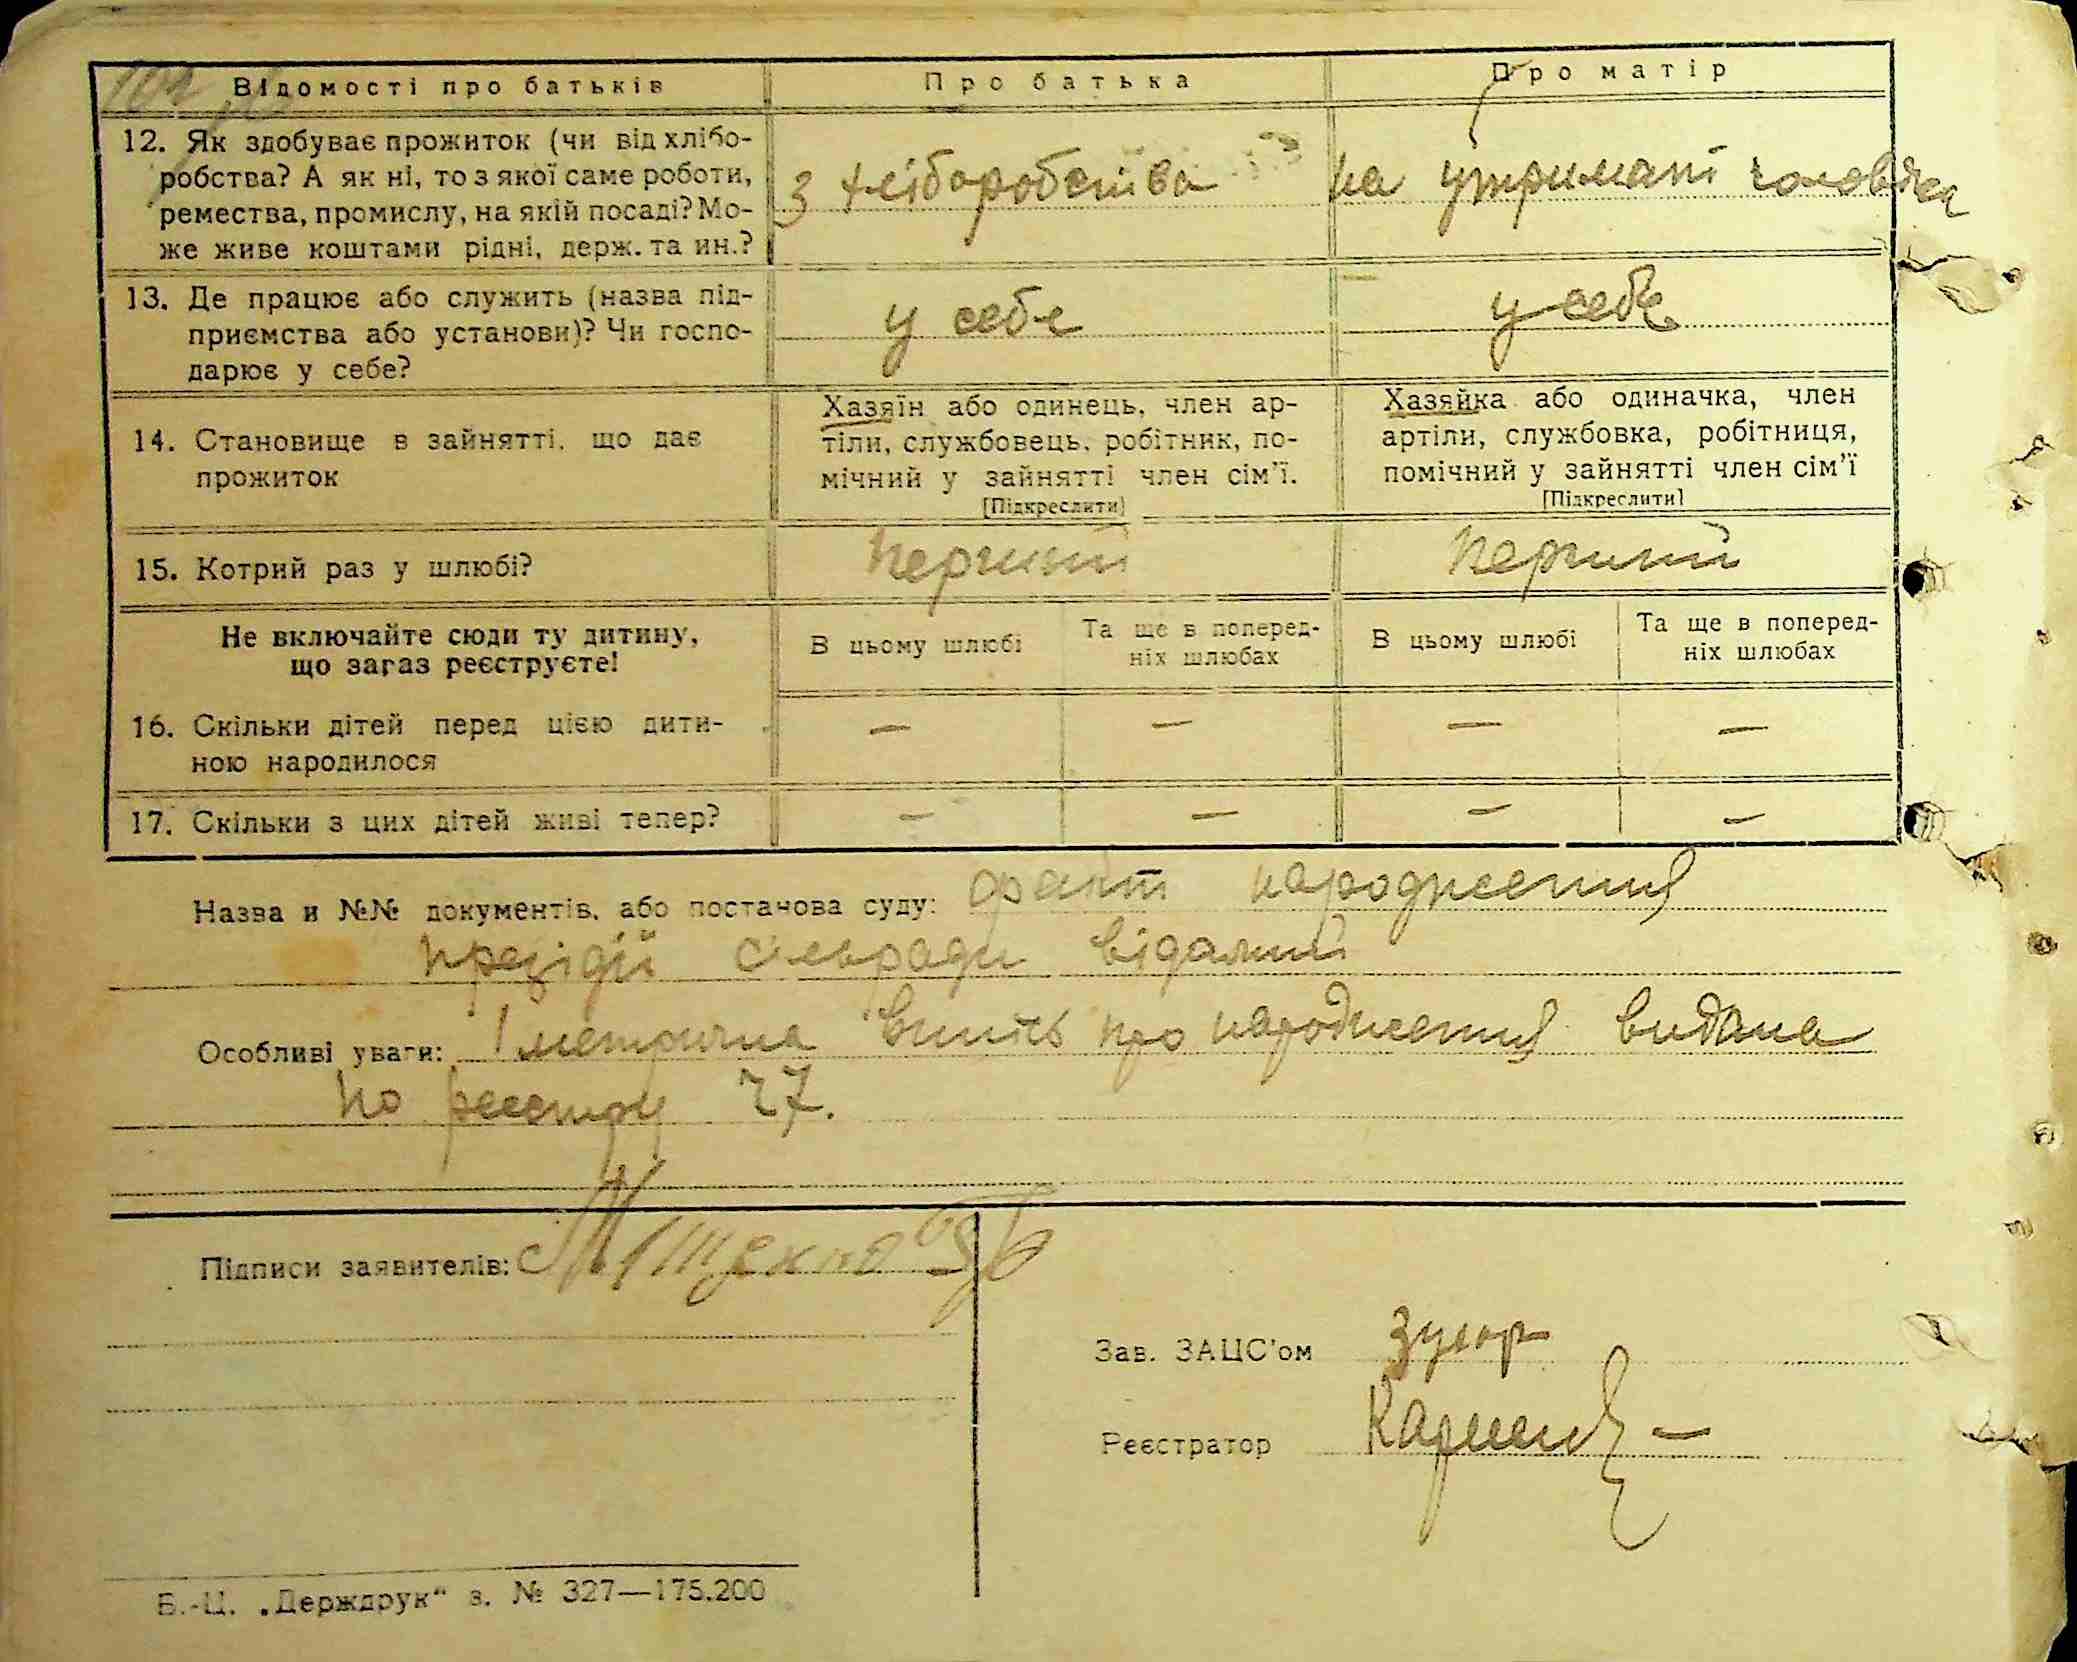 Відомості про батьків Про батька Про матір
12. Як здобуває прожиток (чи від хлібо-
робства? А як ні, то з якої саме роботи,
ремества, промислу, на якій посаді? Мо-
же живе коштами рідні, держ. та ин.?
з хліборобства на утримані чоловіка
13. Де працює або служить (назва під-
приємства або установи)? Чи госпо-
дарює у себе?
у себе у себе
14. Становище в зайнятті, що дає
прожиток
Хазяїн або одинець, член ар-
тіли, службовець, робітник, по-
мічний у зайнятті член сім'ї.
[Підкреслити]
Хазяйка або одиначка, член
артіли, службовка, робітниця,
помічний у зайнятті член сім'ї
[Підкреслити]
15. Котрий раз у шлюбі? перший перший
Не включайте сюди ту дитину,
що загаз реєструєте!
В цьому шлюбі Та ще в поперед-
ніх шлюбах
В цьому шлюбі Та ще в поперед-
ніх шлюбах
16. Скільки дітей перед цією дити-
ною народилося
— — — —
17. Скільки з цих дітей живі тепер? — — — —
Назва и №№ документів, або постанова суду: факт народження
презідії сільради відомий
Особливі уваги: 1 метрична випись про народження видана
по реєстру 27.
Підписи заявителів:
Зав. ЗАЦС'ом
Реєстратор
Б.-Ц. „Держдрук" з. № 327—175.200